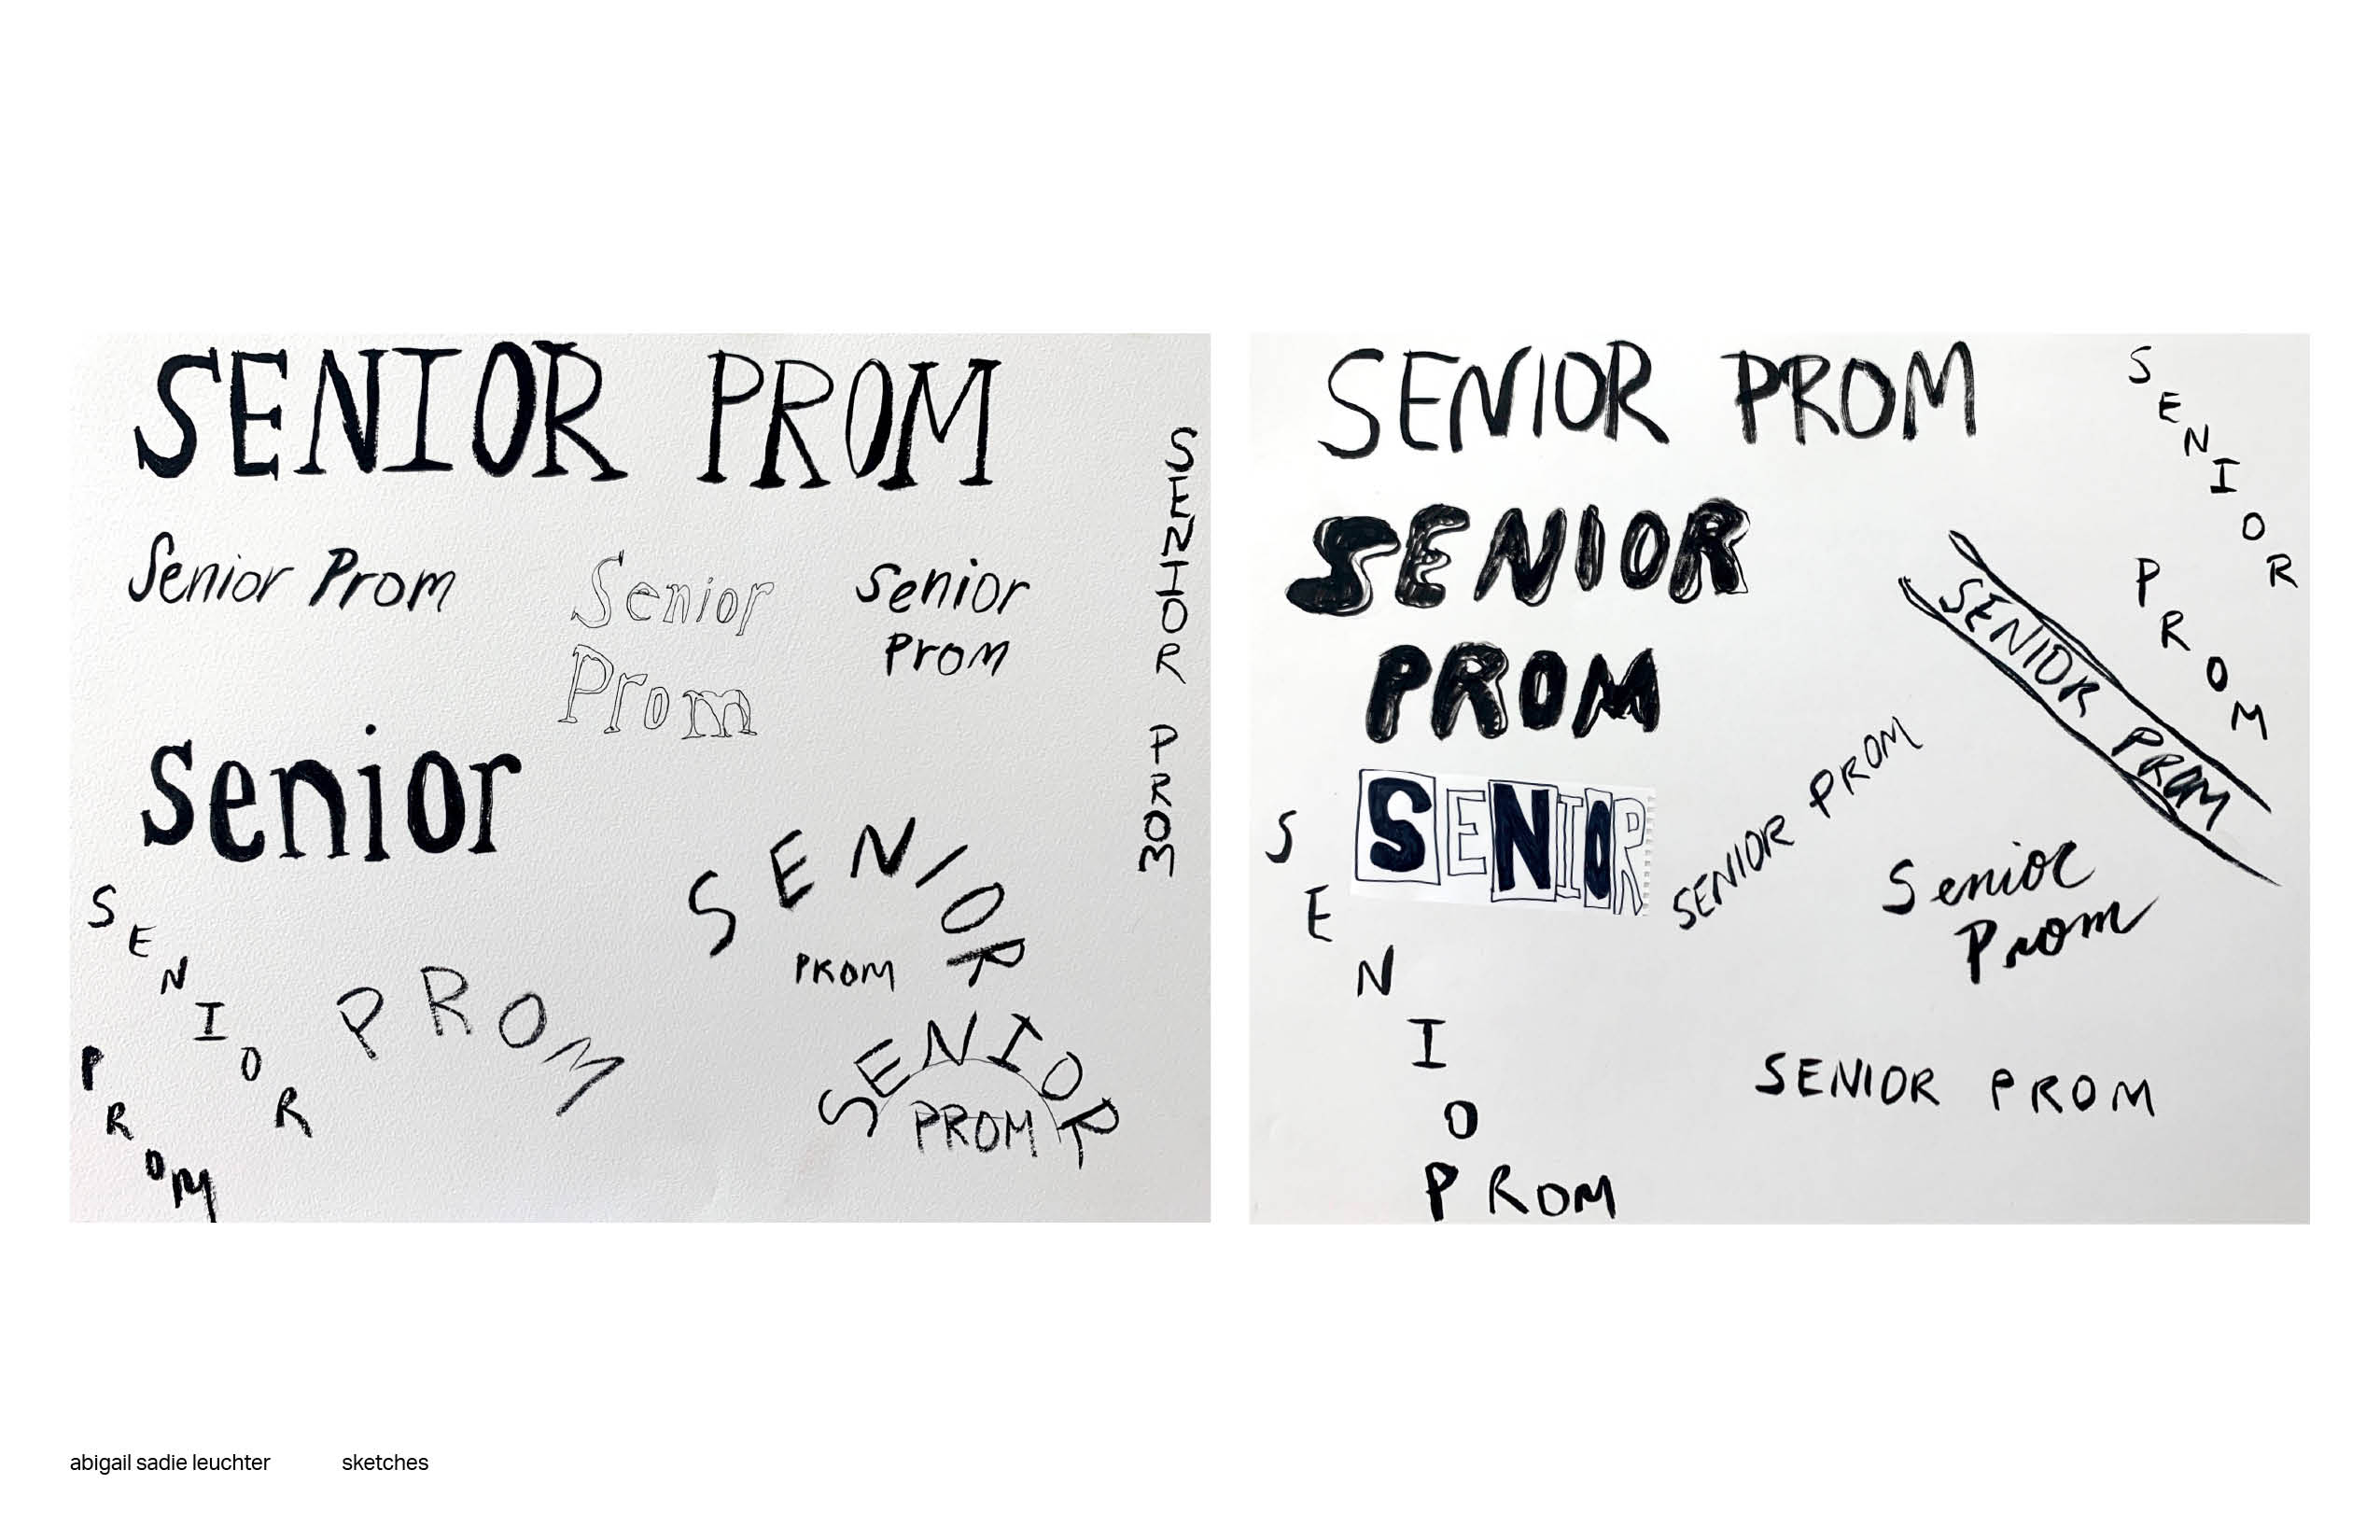 SENIOR PROM
Senior Prom
Senior
Prom
Senior
Prom
SENIOR PROM
senior
SENIOR
PROM
PROM
SENIOR
PROM
SENIOR
PROM
SENIOR PROM
SENIOR
PROM
SENIOR
PROM
SENIOR PROM
SENIOR
SENIOR PROM
Senior
Prom
SENIO
PROM
SENIOR PROM
abigail sadie leuchter
sketches